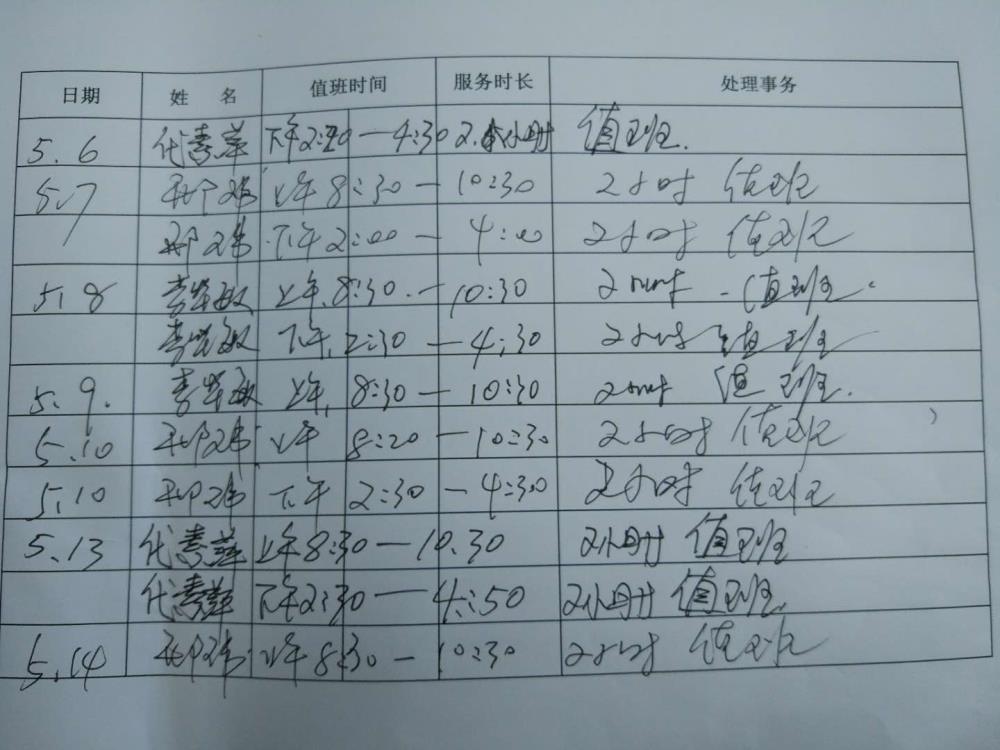 日期 姓 名 值班时间 服务时长 处理事务
5.6 代青萍 下午2:20—4:30 2.小时 值班.
5.7 邢玮 上午8:30—10:30 2小时 值班
邢玮 下午2:00—4:00 2小时 值班
5.8 李华敏 上午.8:30.—10:30 2小时 值班.
李华敏 下午.2:30—4:30 2小时 值班
5.9. 李华敏 上午.8:30—10:30 2小时 值班.
5.10 邢玮 上午 8:20—10:30 2小时 值班
5.10 邢玮 下午 2:30—4:30 2小时 值班
5.13 代青萍 上午8:30—10.30 2小时 值班
代青萍 下午2:30—4:50 2小时 值班
5.14 邢玮 上午8:30—10:30 2小时 值班